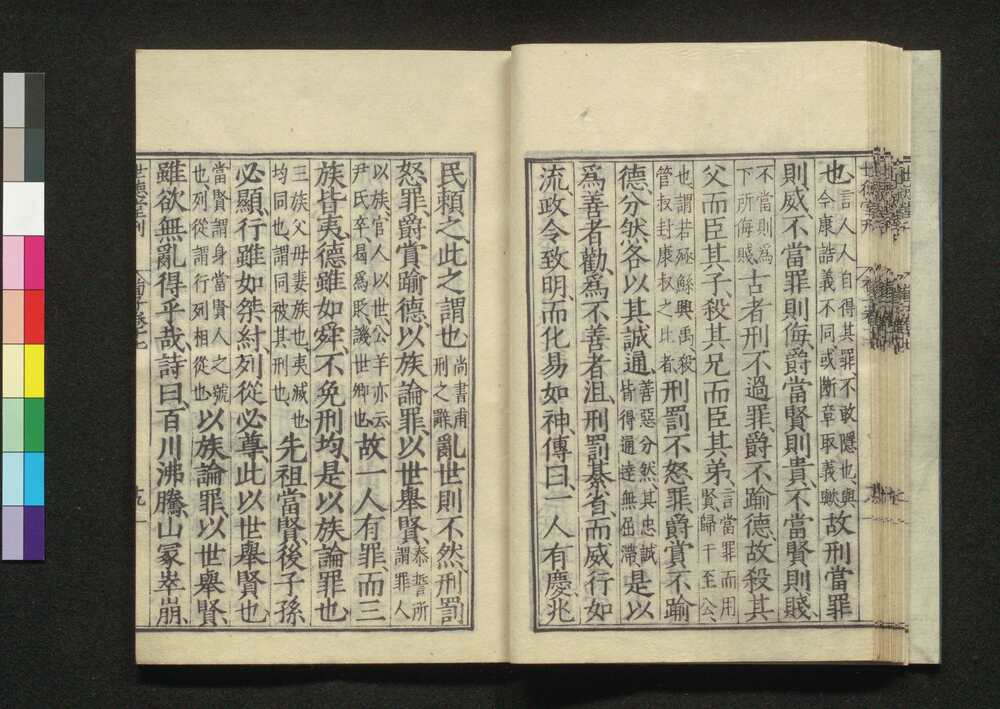 也言人人自得其罪、不敢隱也、與
今康誥義不同、或斷章取義歟、故刑當罪
則威、不當罪則侮、爵當賢則貴、不當賢則賤、
不當則爲
下所侮賤、古者刑不過罪、爵不踰德、故殺其
父而臣其子、殺其兄而臣其弟、言當罪而用
賢歸于至公、
也、謂若殛鯀興禹、殺
管叔封康叔之比者、刑罰不怒罪、爵賞不踰
德、分然各以其誠通、善惡分然、其忠誠
皆得通達無屈滯、是以
爲善者勸、爲不善者沮、刑罰綦省、而威行如
流、政令致明、而化易如神、傳曰、一人有慶、兆
民賴之、此之謂也尚書甫
刑之辭、亂世則不然、刑罰
怒罪、爵賞踰德、以族論罪、以世舉賢、泰誓所
謂罪人
以族、官人以世、公羊亦云
尹氏卒、曷爲貶、譏世卿也、故一人有罪、而三
族皆夷、德雖如舜、不免刑均、是以族論罪也
三族父母妻族也、夷滅也
均同也、謂同被其刑也、先祖當賢、後子孫
必顯、行雖如桀紂、列從必尊、此以世舉賢也、
當賢謂身當賢人之號
也、列從謂行列相從也、以族論罪、以世舉賢、
雖欲無亂得乎哉、詩曰、百川沸騰、山冢崒崩、
世德堂刊